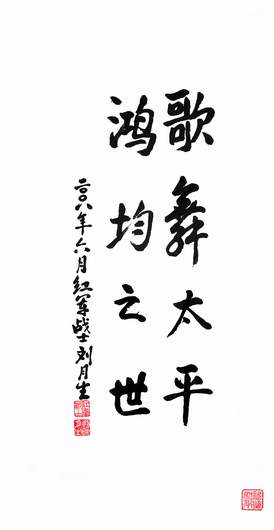 歌舞太平
鸿均之世
二〇〇八年六月红军战士刘月生